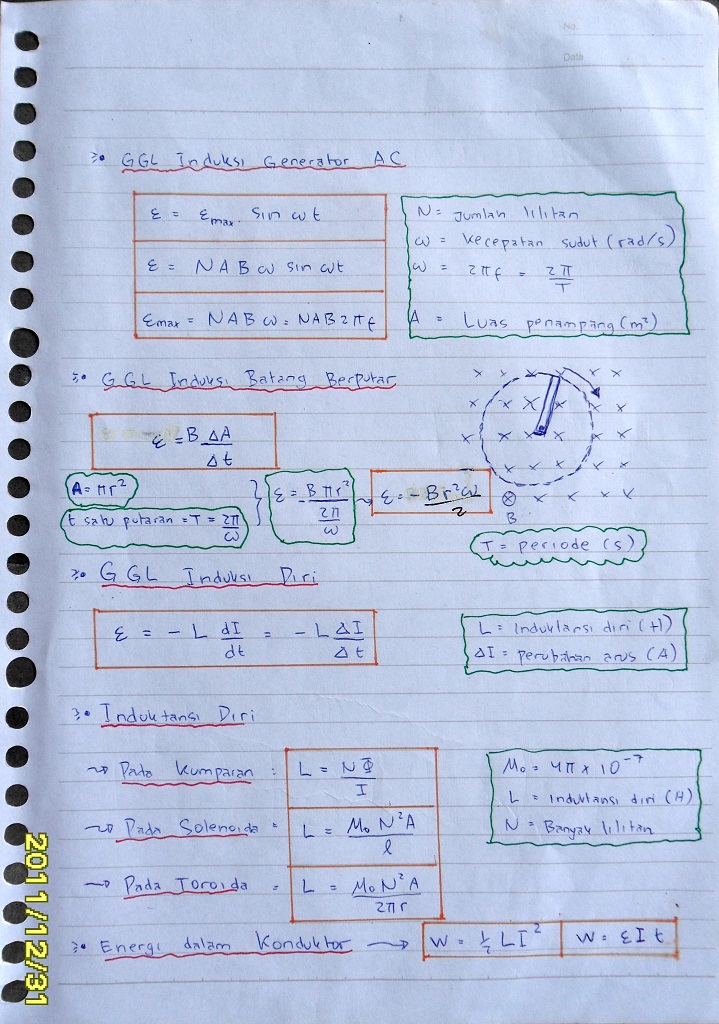 No.
Date
GGL Induksi Generator AC
ε = εmax. sin ωt
ε = NABω sin ωt
εmax = NABω = NAB2πf
N = Jumlah lilitan
ω = Kecepatan sudut (rad/s)
ω = 2πf = 2π/T
A = Luas penampang (m²)
GGL Induksi Batang Berputar
ε = B ΔA/Δt
A = πr²
t satu putaran = T = 2π/ω
ε = - Bπr²/(2π/ω)
ε = - Br²ω/2
B
T = periode (s)
GGL Induksi Diri
ε = - L dI/dt = - L ΔI/Δt
L = Induktansi diri (H)
ΔI = perubahan arus (A)
Induktansi Diri
Pada Kumparan : L = NΦ/I
Pada Solenoida = L = μ₀N²A/l
Pada Toroida = L = μ₀N²A/2πr
μ₀ = 4π x 10⁻⁷
L = Induktansi diri (H)
N = Banyak lilitan
Energi dalam Konduktor → W = ½ LI² W = εIt
2011/12/31